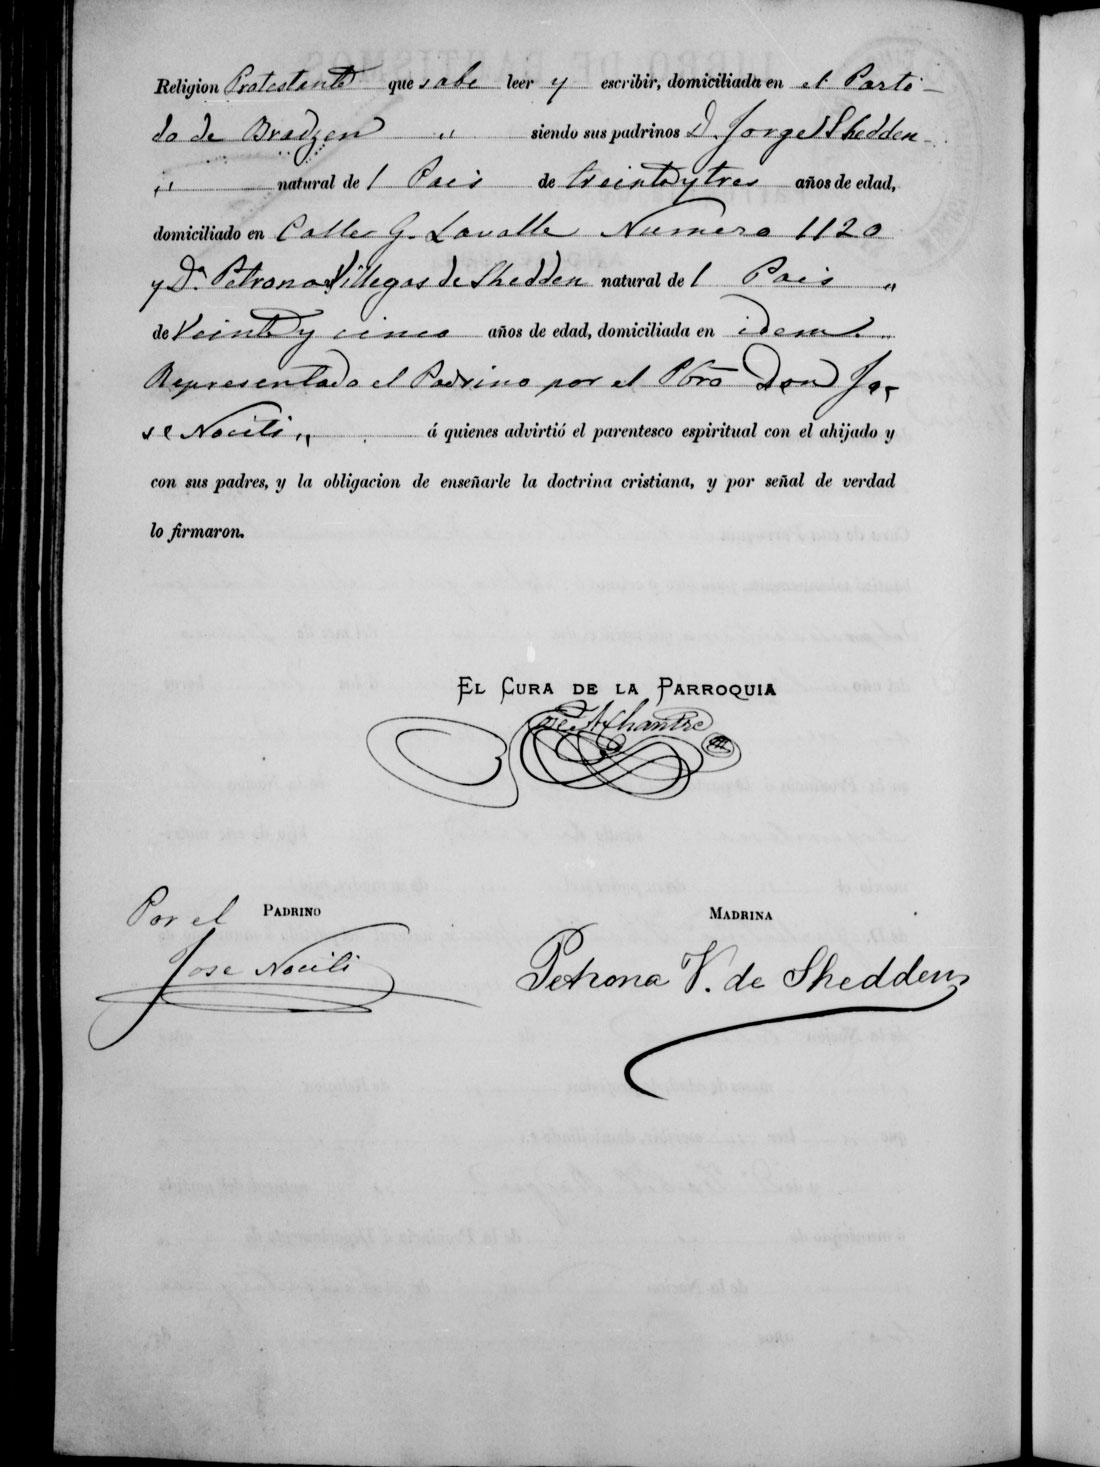 Religion Protestante que sabe leer y escribir, domiciliada en el Parti-
do de Bradzen " siendo sus padrinos D. Jorge Shedden
" natural de l Pais de treinta y tres años de edad,
domiciliado en Calle G. Lavalle Numero 1120
y Dª Petrona Villegas de Shedden natural de l Pais "
de Veinte y cinco años de edad, domiciliada en idem.
Representado el Padrino por el Pbro Don Jo-
se Nociti " á quienes advirtió el parentesco espiritual con el ahijado y
con sus padres, y la obligacion de enseñarle la doctrina cristiana, y por señal de verdad
lo firmaron.
EL CURA DE LA PARROQUIA
Por el PADRINO
MADRINA
Jose Nociti
Petrona V. de Shedden